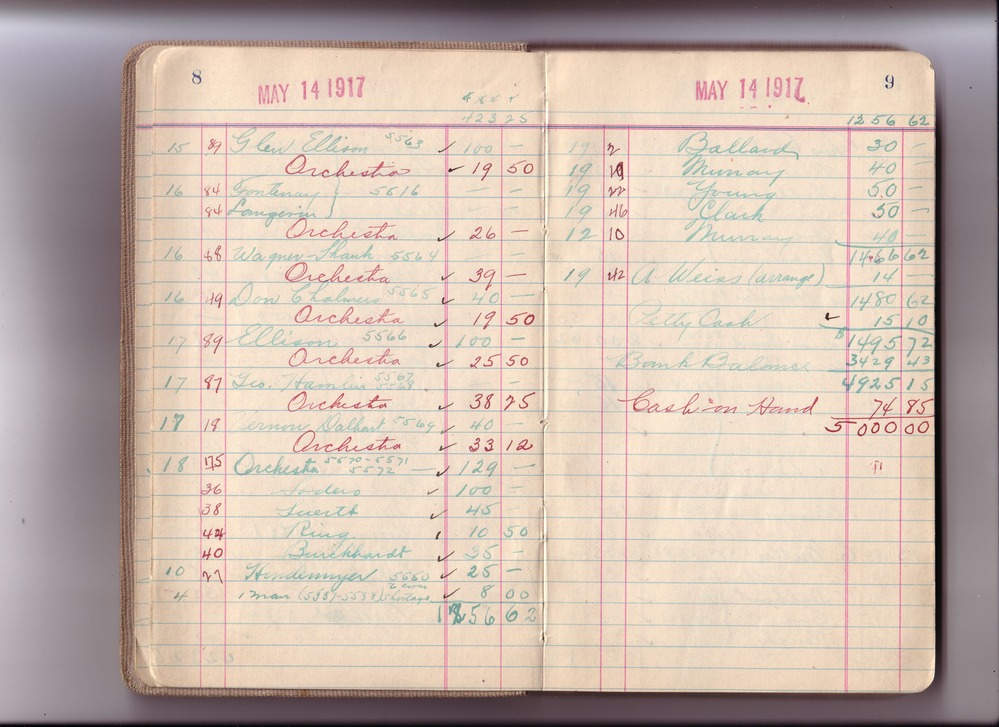 8
MAY 14 1917
423 25
15 89 Glen Ellison 5563 ✓ 100 —
Orchestra ✓ 19 50
16 84 Fontenay } 5516 — —
84 Langevin }
Orchestra ✓ 26 —
16 68 Wagner-Shank 5564 — —
Orchestra ✓ 39 —
16 49 Don Chalmers 5565 ✓ 40 —
Orchestra ✓ 19 50
17 89 Ellison 5566 ✓ 100 —
Orchestra ✓ 25 50
17 87 Geo. Hamlin 5567 5568 — —
Orchestra ✓ 38 75
17 19 Vernon Dalhart 5569 ✓ 40 —
Orchestra ✓ 33 12
18 175 Orchestra 5570-5571 5572 — ✓ 129 —
36 Sodero ✓ 100 —
38 ✓ 45 —
44 Ring ✓ 10 50
40 Burckhardt ✓ 35 —
10 77 5550 ✓ 25 —
4 1 man shortage ✓ 8 00
1256 62
MAY 14 1917
9
1256 62
Ballard 30 —
19 19 Murray 40 —
19 Young 50 —
19 46 Clark 50 —
12 10 Murray 40 —
1466 62
19 42 A Weiss (arrange) 14 —
1480 62
Petty Cash ✓ 15 10
$1495 72
Bank Balance 3429 43
4925 15
Cash on Hand 74 85
5000 00